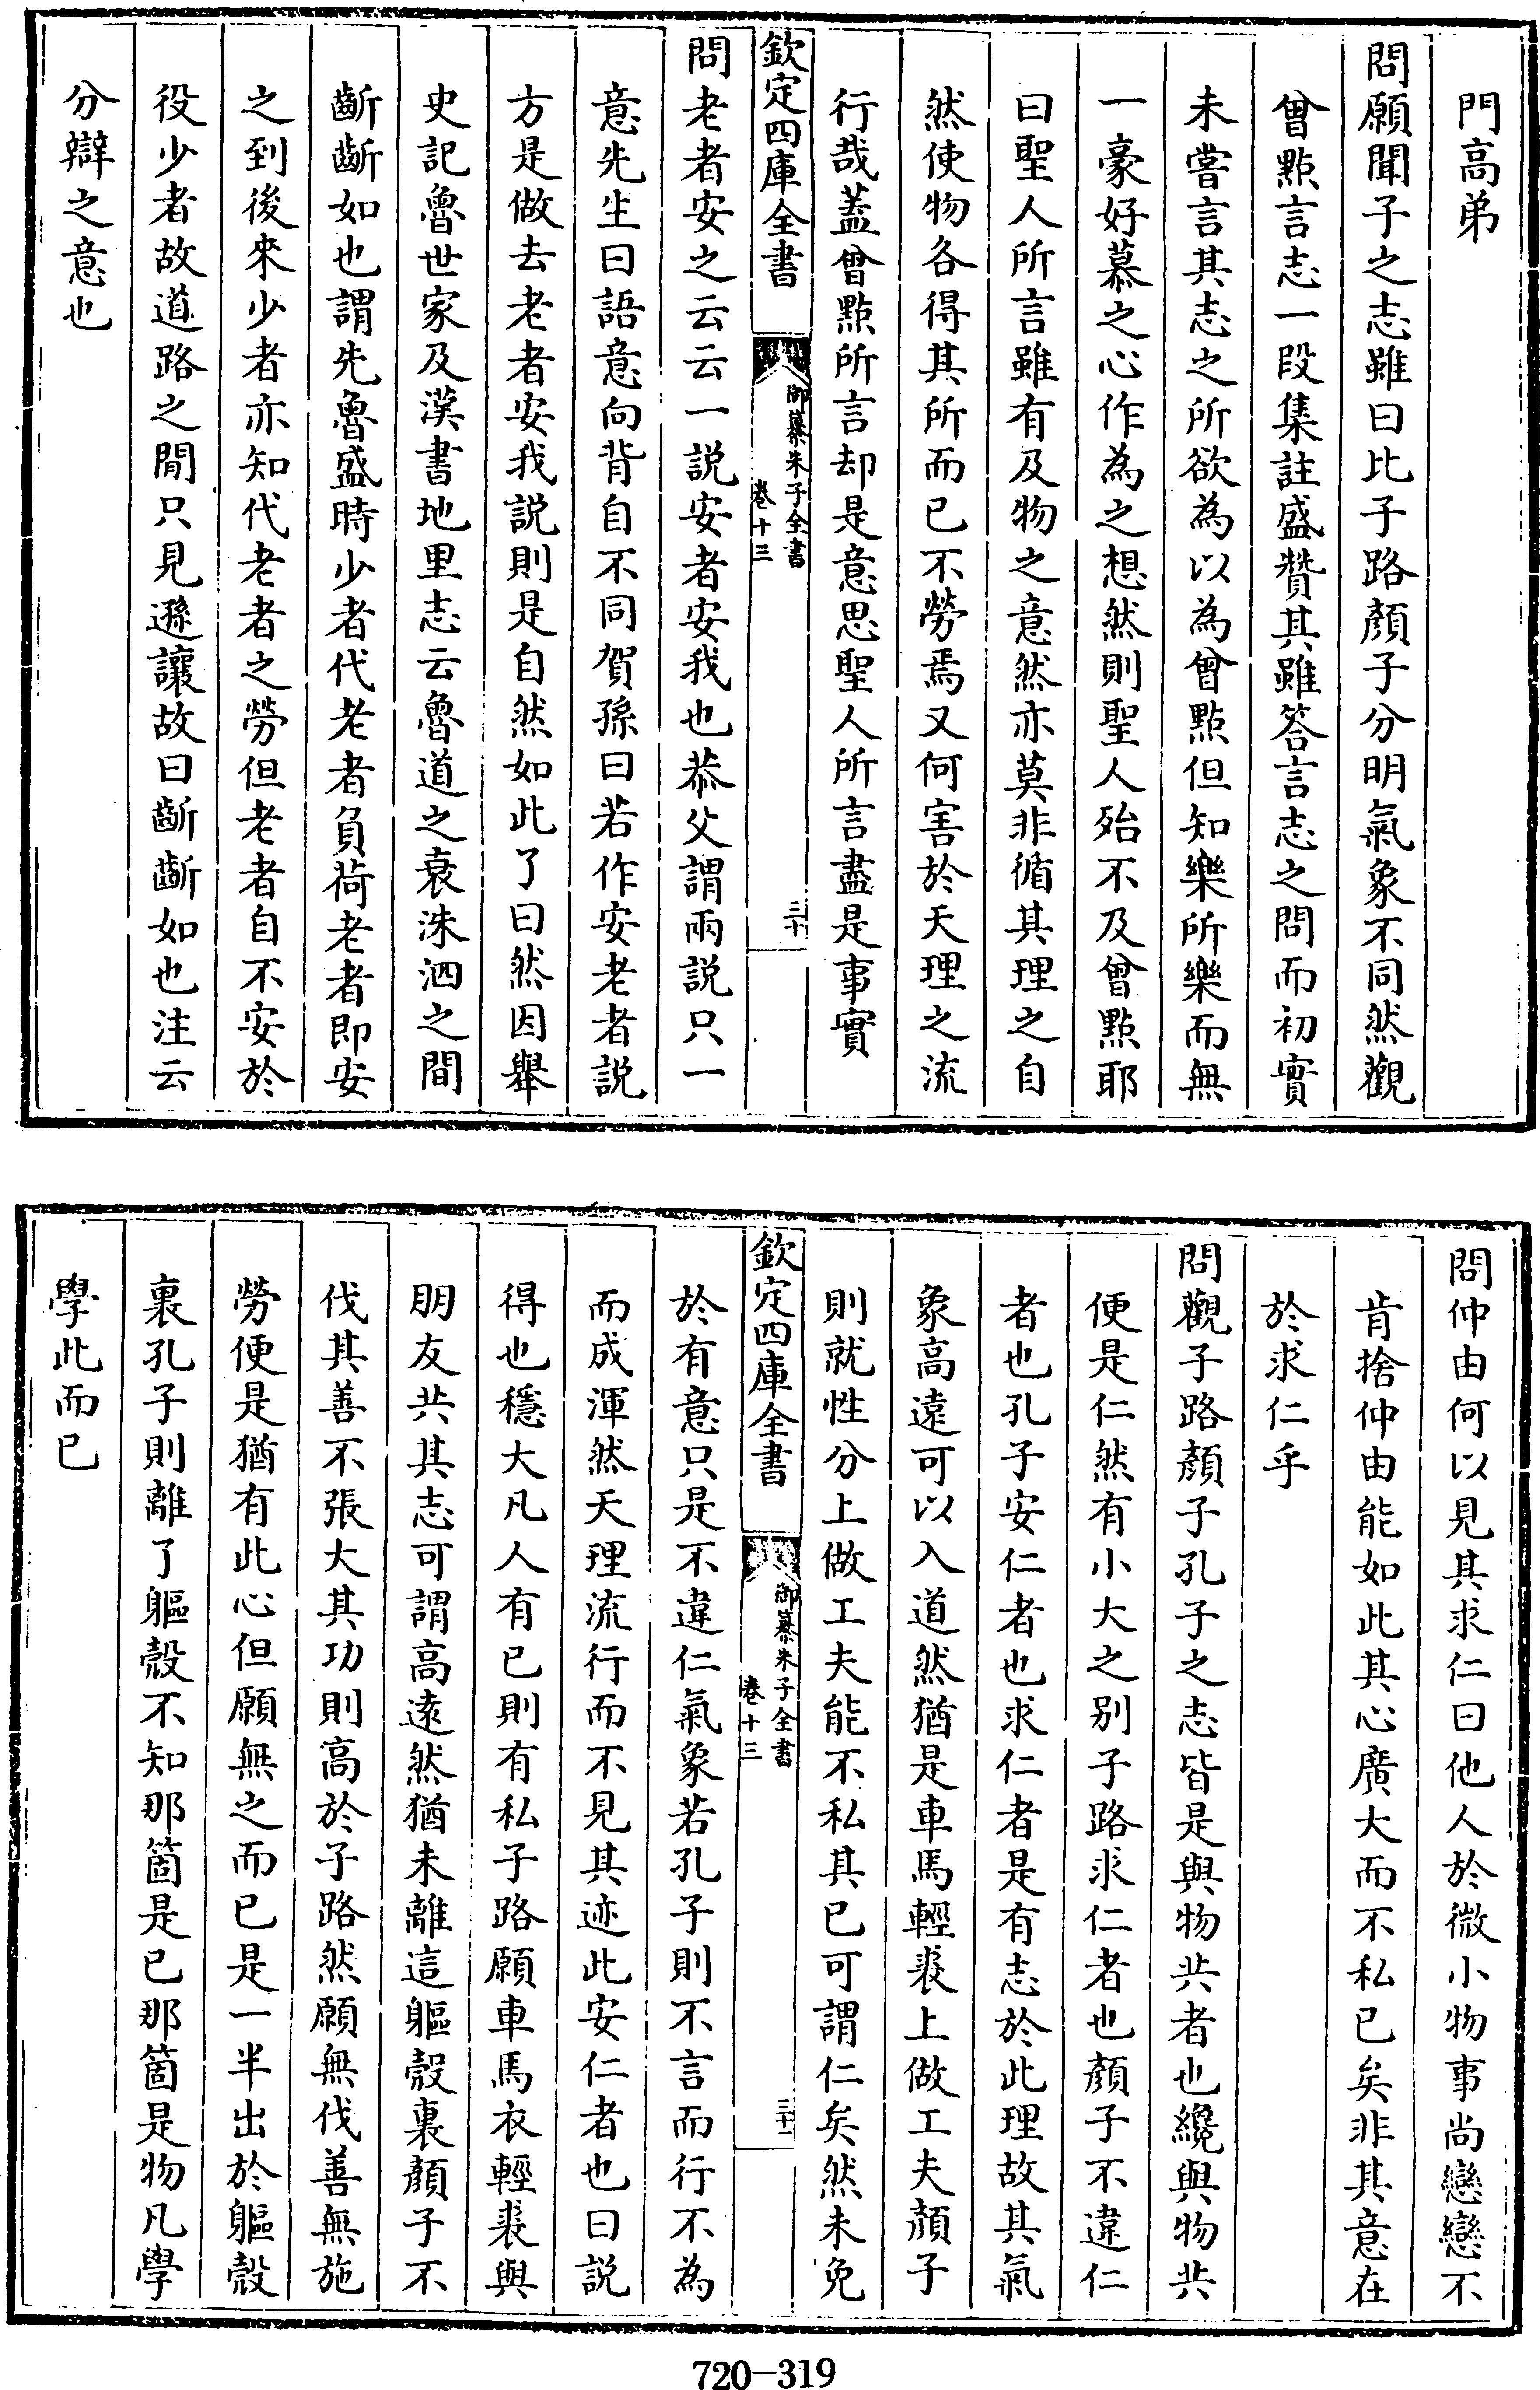 門高弟
問願聞子之志雖曰比子路顏子分明氣象不同然觀
曾點言志一段集註盛贊其雖答言志之問而初實
未嘗言其志之所欲為以為曾點但知樂所樂而無
一豪好慕之心作為之想然則聖人殆不及曾點耶
曰聖人所言雖有及物之意然亦莫非循其理之自
然使物各得其所而已不勞焉又何害於天理之流
行哉蓋曾點所言却是意思聖人所言盡是事實
欽定四庫全書
御纂朱子全書
卷十三
三十
問老者安之云云一說安者安我也恭父謂兩說只一
意先生曰語意向背自不同賀孫曰若作安老者說
方是做去老者安我說則是自然如此了曰然因舉
史記魯世家及漢書地里志云魯道之衰洙泗之間
齗齗如也謂先魯盛時少者代老者負荷老者即安
之到後來少者亦知代老者之勞但老者自不安於
役少者故道路之間只見遜讓故曰齗齗如也注云
分辯之意也
問仲由何以見其求仁曰他人於微小物事尚戀戀不
肯捨仲由能如此其心廣大而不私已矣非其意在
於求仁乎
問觀子路顏子孔子之志皆是與物共者也纔與物共
便是仁然有小大之别子路求仁者也顏子不違仁
者也孔子安仁者也求仁者是有志於此理故其氣
象高遠可以入道然猶是車馬輕裘上做工夫顏子
則就性分上做工夫能不私其已可謂仁矣然未免
欽定四庫全書
御纂朱子全書
卷十三
三十一
於有意只是不違仁氣象若孔子則不言而行不為
而成渾然天理流行而不見其迹此安仁者也曰說
得也穩大凡人有已則有私子路願車馬衣輕裘與
朋友共其志可謂高遠然猶未離這軀殼裏顏子不
伐其善不張大其功則高於子路然願無伐善無施
勞便是猶有此心但願無之而已是一半出於軀殼
裏孔子則離了軀殼不知那箇是已那箇是物凡學
學此而已
720-319